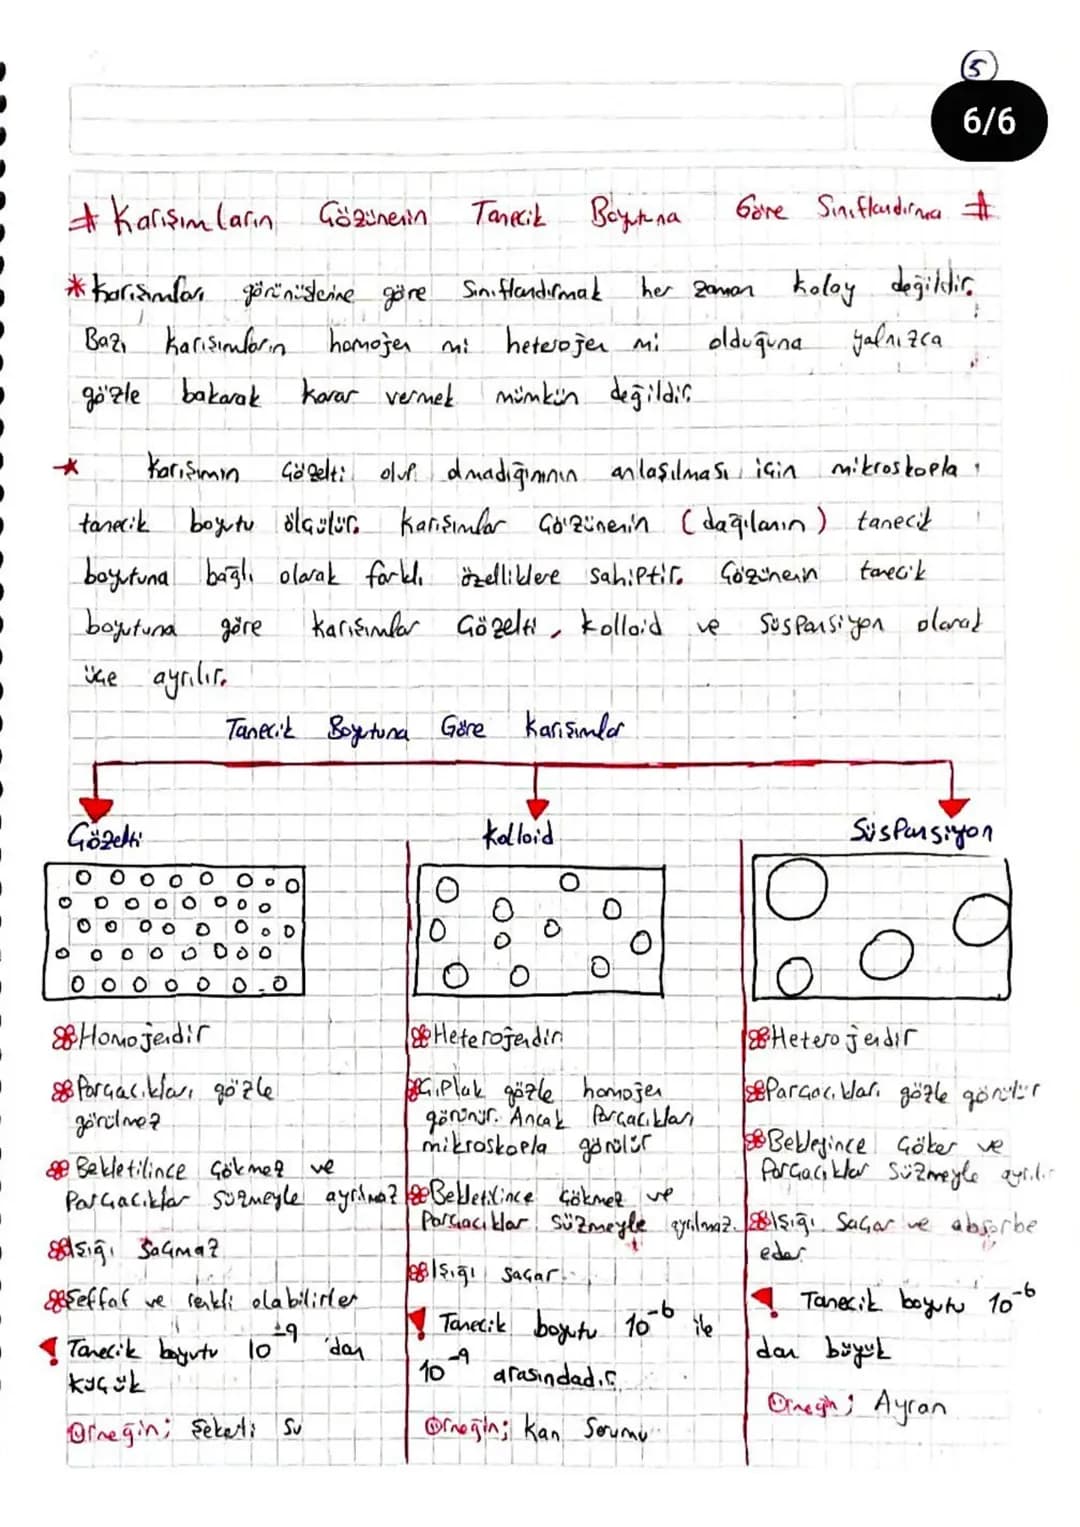 5
6/6
# Karışımların Çözünenin Tanecik Boyutuna Göre Sınıflandırma #
* Karışımları görünüşlerine göre sınıflandırmak her zaman kolay değildir.
Bazı karışımların homojen mi heterojen mi olduğuna yalnızca
gözle bakarak karar vermek mümkün değildir.
* Karışımın çözelti olup olmadığının anlaşılması için mikroskopla
tanecik boyutu ölçülür. Karışımlar çözünenin (dağılanın) tanecik
boyutuna bağlı olarak farklı özelliklere sahiptir. Çözünenin tanecik
boyutuna göre karışımlar çözelti, kolloid ve süspansiyon olarak
üçe ayrılır.
Tanecik Boyutuna Göre Karışımlar
Çözelti
Homojendir
Parçacıkları gözle
görülmez
Bekletilince çökmez ve
Parçacıklar süzmeyle ayrılmaz
Işığı saçmaz
Şeffaf ve renkli olabilirler
! Tanecik boyutu 10⁻⁹ 'dan
küçük
Örneğin; Şekerli su
Kolloid
Heterojendir
Çıplak gözle homojen
görünür. Ancak Parçacıkları
mikroskopla görülür
Bekletilince çökmez ve
Parçacıklar süzmeyle ayrılmaz.
Işığı saçar.
! Tanecik boyutu 10⁻⁶ ile
10⁻⁹ arasındadır.
Örneğin; Kan Serumu
Süspansiyon
Heterojendir
Parçacıkları gözle görülür
Bekleyince çöker ve
Parçacıklar süzmeyle ayrılır
Işığı saçar ve absorbe
eder
! Tanecik boyutu 10⁻⁶
dan büyük
Örneğin; Ayran